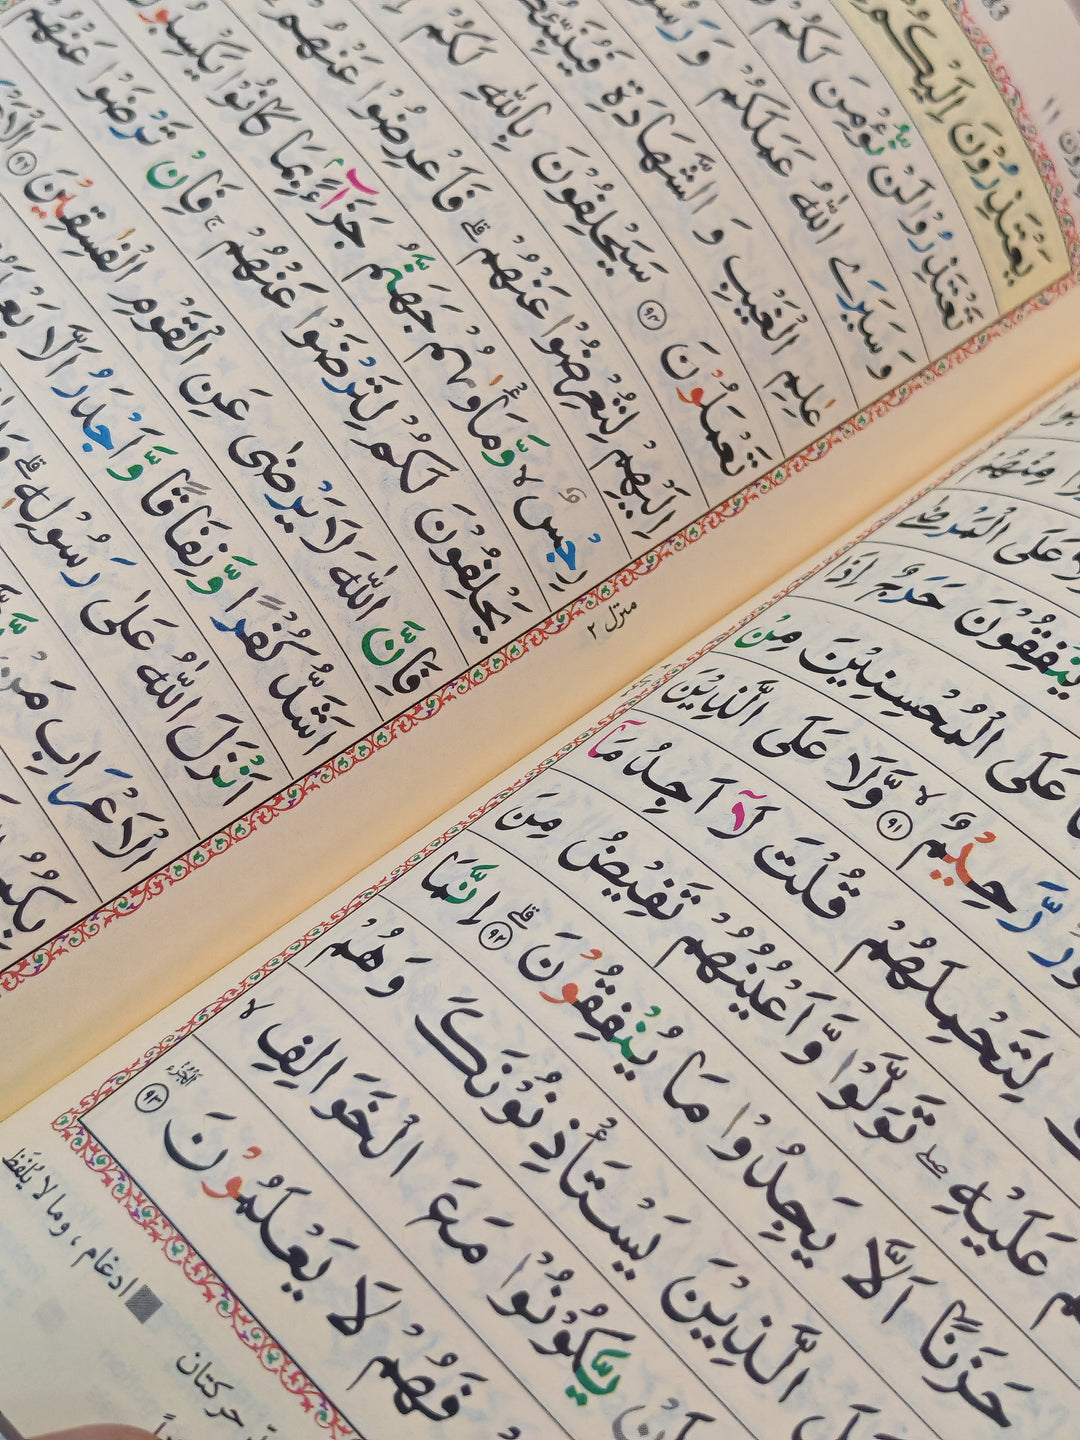 مِنْهُمْ
عَلَى الْمَرْضٰى
يُنْفِقُوْنَ حَرَجٌ اِذَا
عَلَى الْمُحْسِنِيْنَ مِنْ
رَّحِيْمٌ ۙ ٩١ وَّلَا عَلَى الَّذِيْنَ
لِتَحْمِلَهُمْ قُلْتَ لَاۤ اَجِدُ مَاۤ
عَلَيْهِ ۪ تَوَلَّوْا وَّاَعْيُنُهُمْ تَفِيْضُ مِنَ
حَزَنًا اَلَّا يَجِدُوْا مَا يُنْفِقُوْنَ ؕ ٩٢ اِنَّمَا
الَّذِيْنَ يَسْتَاْذِنُوْنَكَ وَهُمْ
يَّكُوْنُوْا مَعَ الْخَوَالِفِ ۙ
فَهُمْ لَا يَعْلَمُوْنَ ٩٣
ادغام ، وما لا يلفظ
حركتان
يَعْتَذِرُوْنَ اِلَيْكُمْ
تَعْتَذِرُوْا لَنْ نُّؤْمِنَ لَكُمْ
وَسَيَرَى اللّٰهُ عَمَلَكُمْ
عٰلِمِ الْغَيْبِ وَ الشَّهَادَةِ
تَعْمَلُوْنَ ٩٤ سَيَحْلِفُوْنَ بِاللّٰهِ لَكُمْ
اِلَيْهِمْ لِتُعْرِضُوْا عَنْهُمْ ؕ فَاَعْرِضُوْا عَنْهُمْ
رِجْسٌ ۙ وَّمَاْوٰىهُمْ جَهَنَّمُ جَزَآءًۢ بِمَا كَانُوْا
يَحْلِفُوْنَ لَكُمْ لِتَرْضَوْا عَنْهُمْ ۚ فَاِنْ تَرْضَوْا عَنْهُمْ
فَاِنَّ اللّٰهَ لَا يَرْضٰى عَنِ الْقَوْمِ الْفٰسِقِيْنَ ٩٦
اَشَدُّ كُفْرًا وَّنِفَاقًا وَّاَجْدَرُ اَلَّا
اَنْزَلَ اللّٰهُ عَلٰى رَسُوْلِهٖ ؕ
الْاَعْرَابِ مَنْ
بِكُمُ
منزل ٢